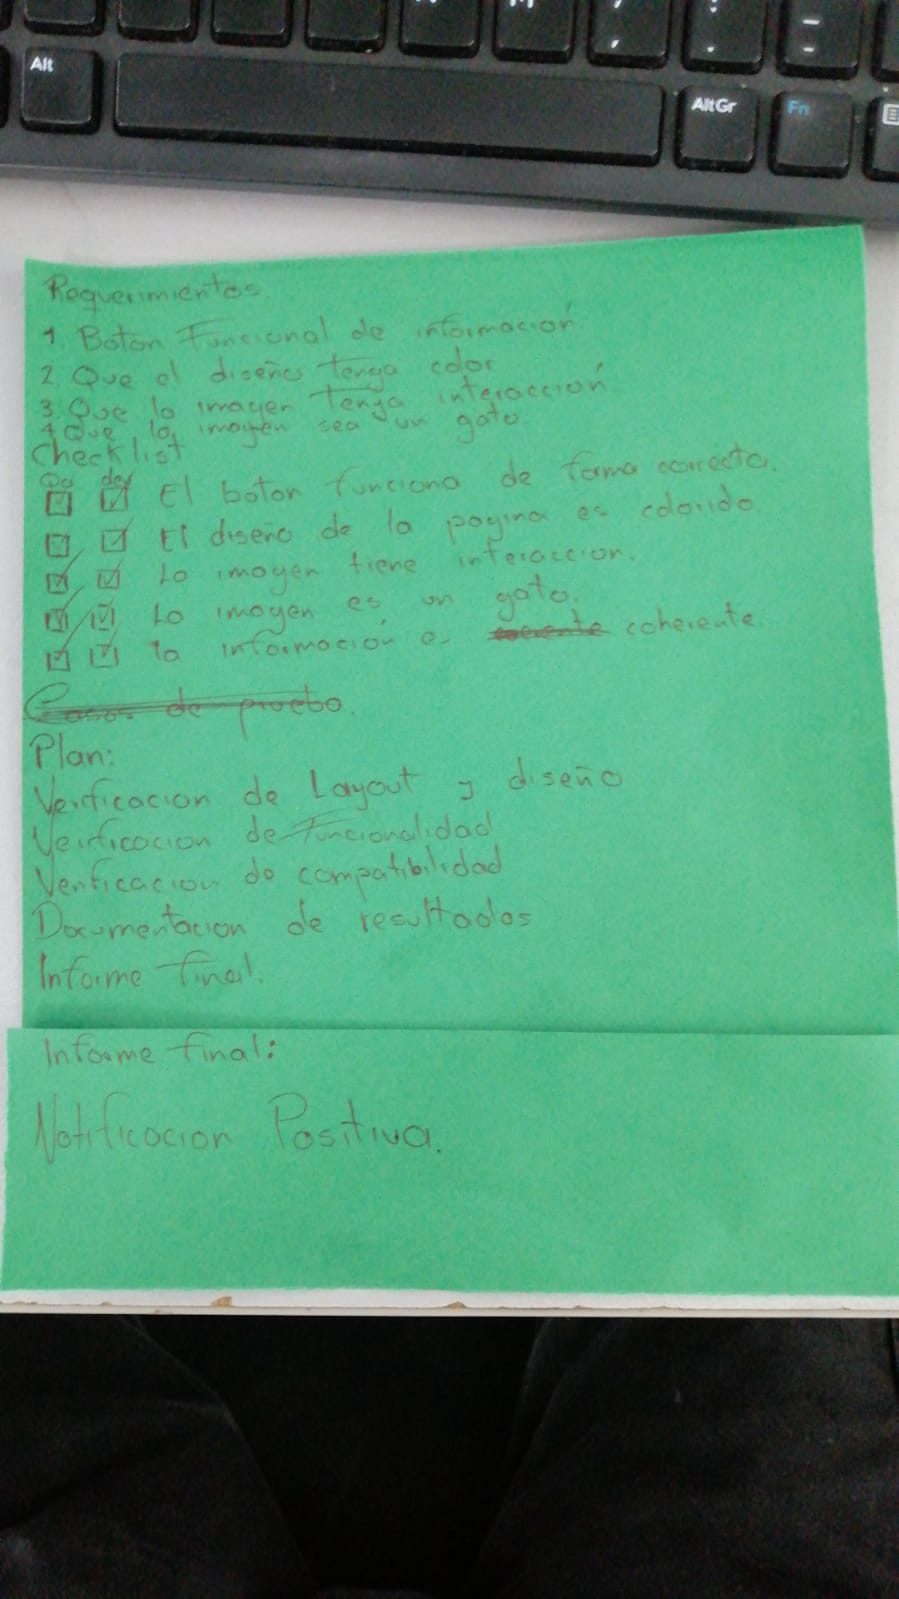 Alt
AltGr
Fn
Requerimientos
1. Boton Funcional de información
2. Que el diseño tenga color
3. Que la imagen Tenga interacción
4. Que la imagen sea un gato.
Checklist
Qa dev
El boton funciona de forma correcta.
El diseño de la pagina es colorido.
La imagen tiene interaccion.
La imagen es un gato.
la información es coherente.
Casos de prueba.
Plan:
Verificacion de Layout y diseño
Verificacion de Funcionalidad
Verificacion de compatibilidad
Documentacion de resultados
Informe final.
Informe final:
Notificacion Positiva.